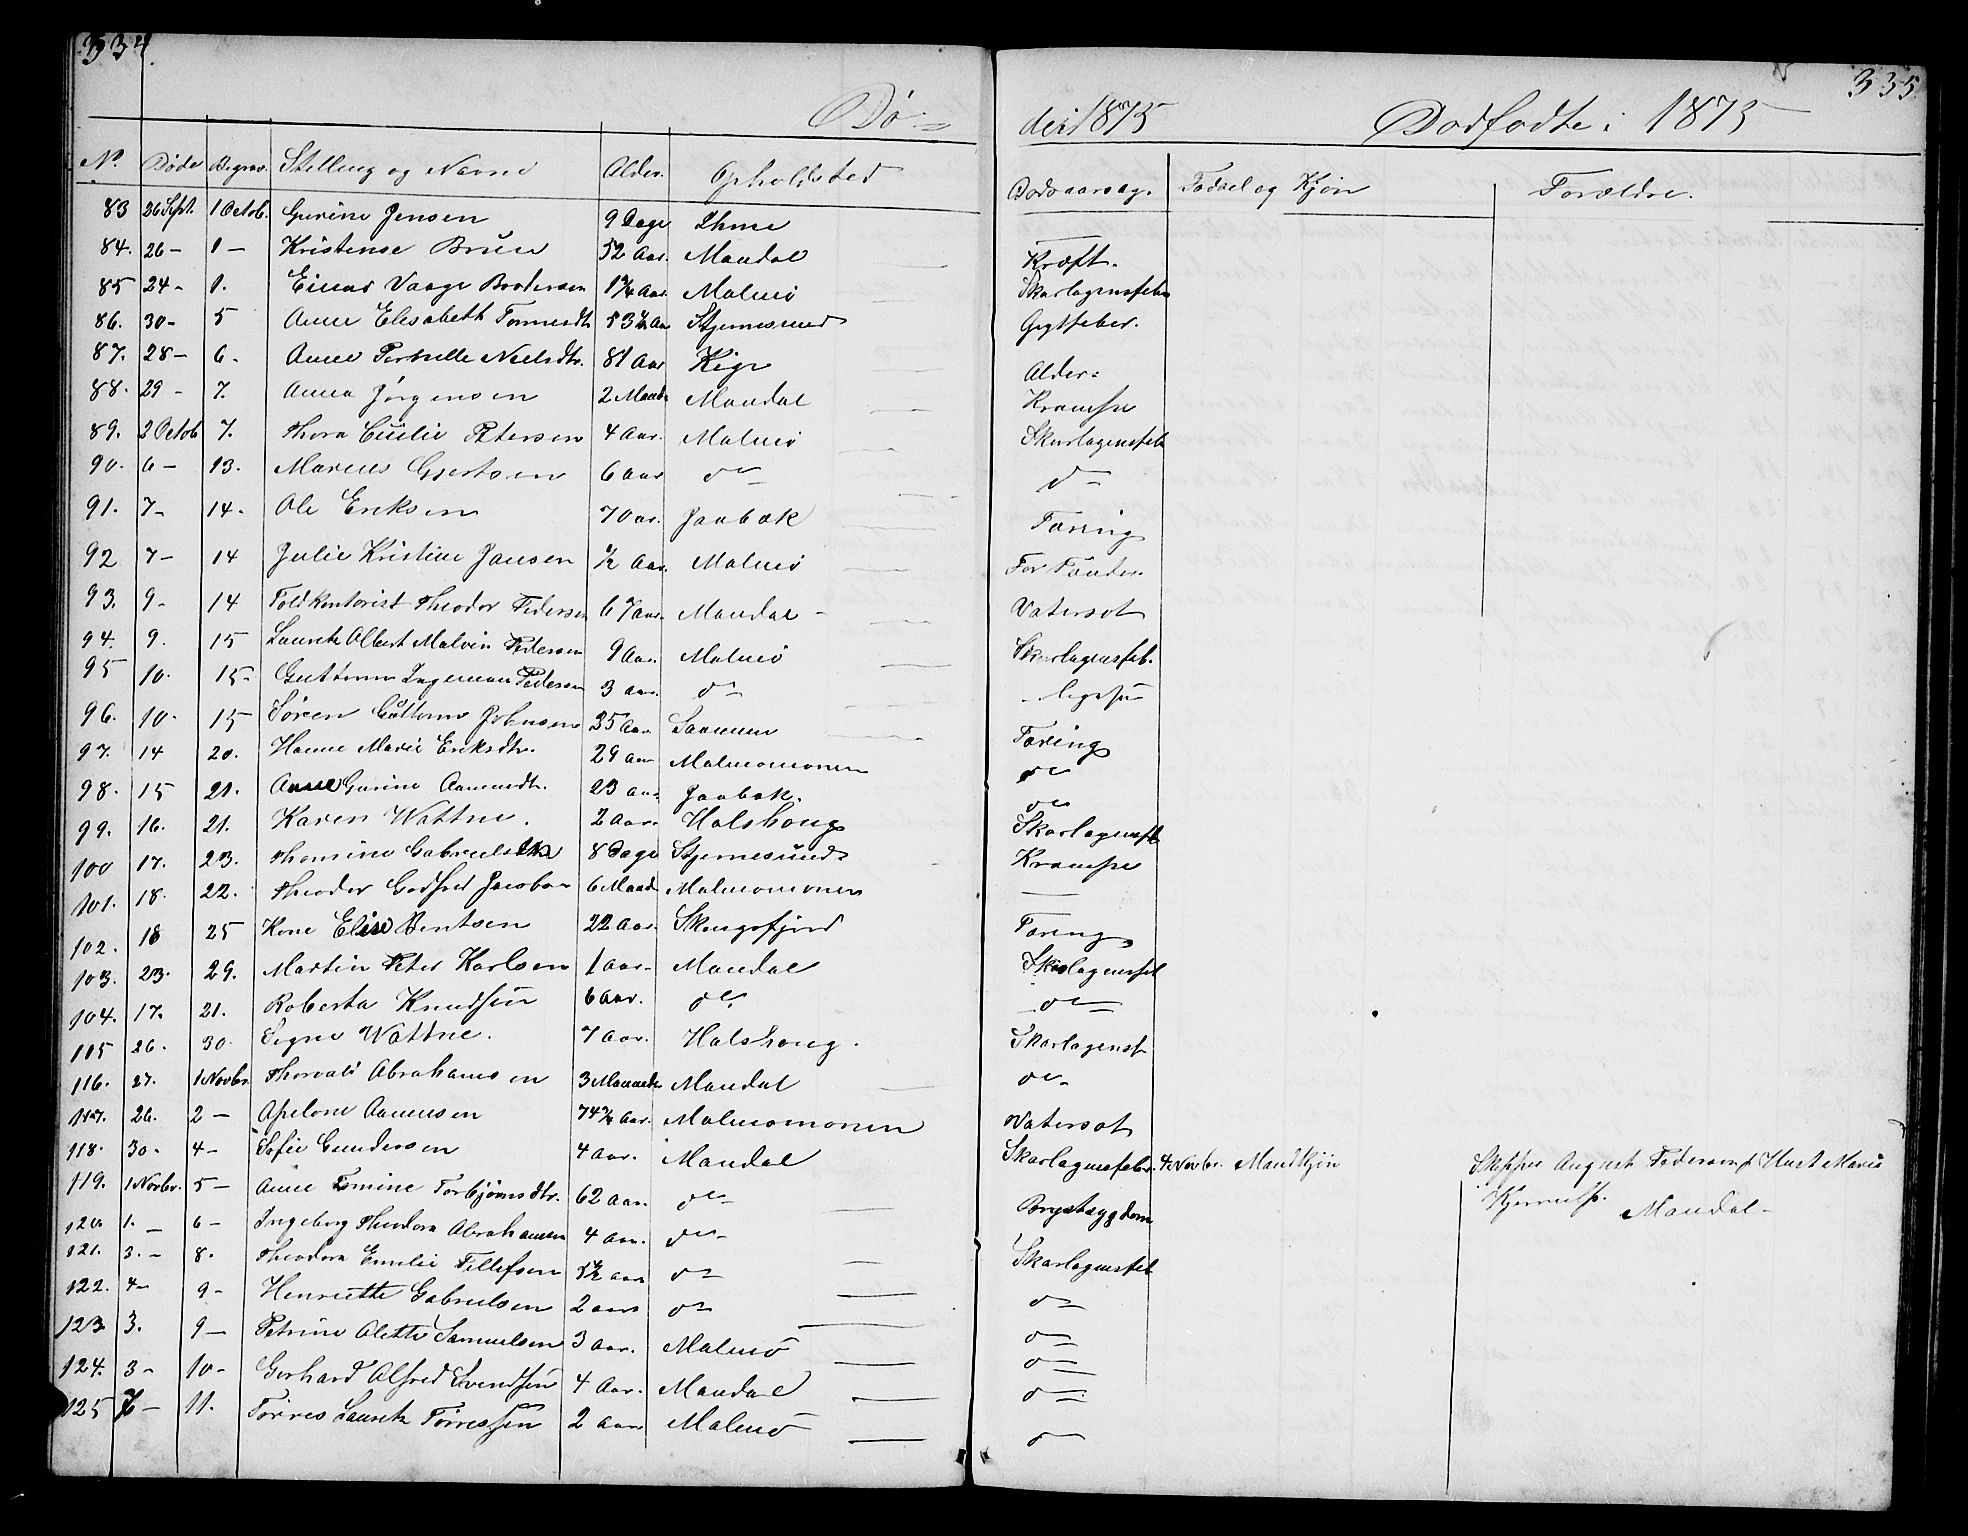 334.
335
Dø-
de i 1875
Dodfodte i 1875
No. Døde Begrav. Stilling og Navne Alder. Opholdsted Dodsaarsag. Fodsel og Kjön Forældre.
83 26 Sept. 1 Octob. Gurine Jensen 9 Dage Ihme —
84. 26 - 1 - Kristense Brun 52 Aar. Mandal Kræft.
85 24 - 1. Einar Vaage Brodersen 1 3/4 Aar Malmö Skarlagensfeber
86. 30 - 5 Anne Elisabeth Tønnesdtr 53 1/2 Aar Stjernesund Gigtfeber.
87. 28 - 6. Anne Pernille Nielsdtr. 81 Aar Kige Alder.
88. 29 - 7. Anna Jørgensen 2 Maandr Mandal Krampe
89. 2 Octob 7. Thora Cecilie Petersen 4 Aar. Malmö Skarlagensfeb
90. 6 - 13. Marius Gjertsen 6 Aar do do
91. 7 - 14. Ole Eriksen 70 ar. Jaabæk Tæring
92 7 - 14 Julie Kristine Jansen 1/2 Aar. Malmö For Tænder.
93. 9 - 14 Toldkontorist Theodor Pedersen Mandal - Vatersot
94. 9. 15 Lauretz Albert Malvin Pedersen 9 Aar. Malmö Skarlagensfeb.
95 10. 15 - Guttorm Ingeman Pedersen 3 aar. do
96. 10. 15 Søren Guttorm Johnsen 35 Aar Sannum Tæring
97. 14 20. Hanne Marie Eriksdtr. 29 aar Malmomonen do
98. 15 21. Anne Gurine Aanensdtr. 23 aar Jaabæk. do
99. 16. 21. Karen Wattne. 2 Aar. Halshoug Skarlagensfb
100 17. 23. Thomine Gabrielsen 8 Dage Stjernesund Krampe
101. 18. 22. Theodor Godfred Jacobsen 6 Maandr Malmomonen —
102. 18 25 Kone Elise Berntsen 22 Aar. Skougsfjord Tæring
103. 23. 29. Martin Peter Karlsen 1 aar. Mandal Skarlagensfeb
104. 17. 21. Roberta Knudsen 6 aar. do do
115 26. 30. Signe Wattne. 7 Aar. Halshoug. Skarlagensf
116. 27. 1 Novbr. Thorvald Abrahamsen 3 Maaneder Mandal do
117. 26. 2 - Apelone Aanensen 74 1/2 Aar. Malmomonen Vatersot
118. 30. 4 - Sofie Gundersen 4 aar. Mandal Skarlagensfeber. 4 Novbr. Mandkjön Skipper August Pedersen & Hust Marie
119. 1 Novbr. 5 - Anne Tomine Torbjørnsdtr. 62 aar. do Brystsygdom Mandal -
120. 1. - 6 - Ingeborg Theodora Abrahamsen 4 aar. do
121. 3. - 8. Theodora Emilie Tellefsen 5 1/2 aar do Skarlagensfeb
122. 4 - 9 - Henriette Gabrielsen 2 aar do do
123 3. 9 - Petrine Alette Samuelsen 3 aar. Malmö do
do
124. 3 - 10 - Gerhard Alfred Svendsen 4 Aar. Mandal do
125 7 - 11. Tørres Lauretz Tørresen 2 aar Malmö do